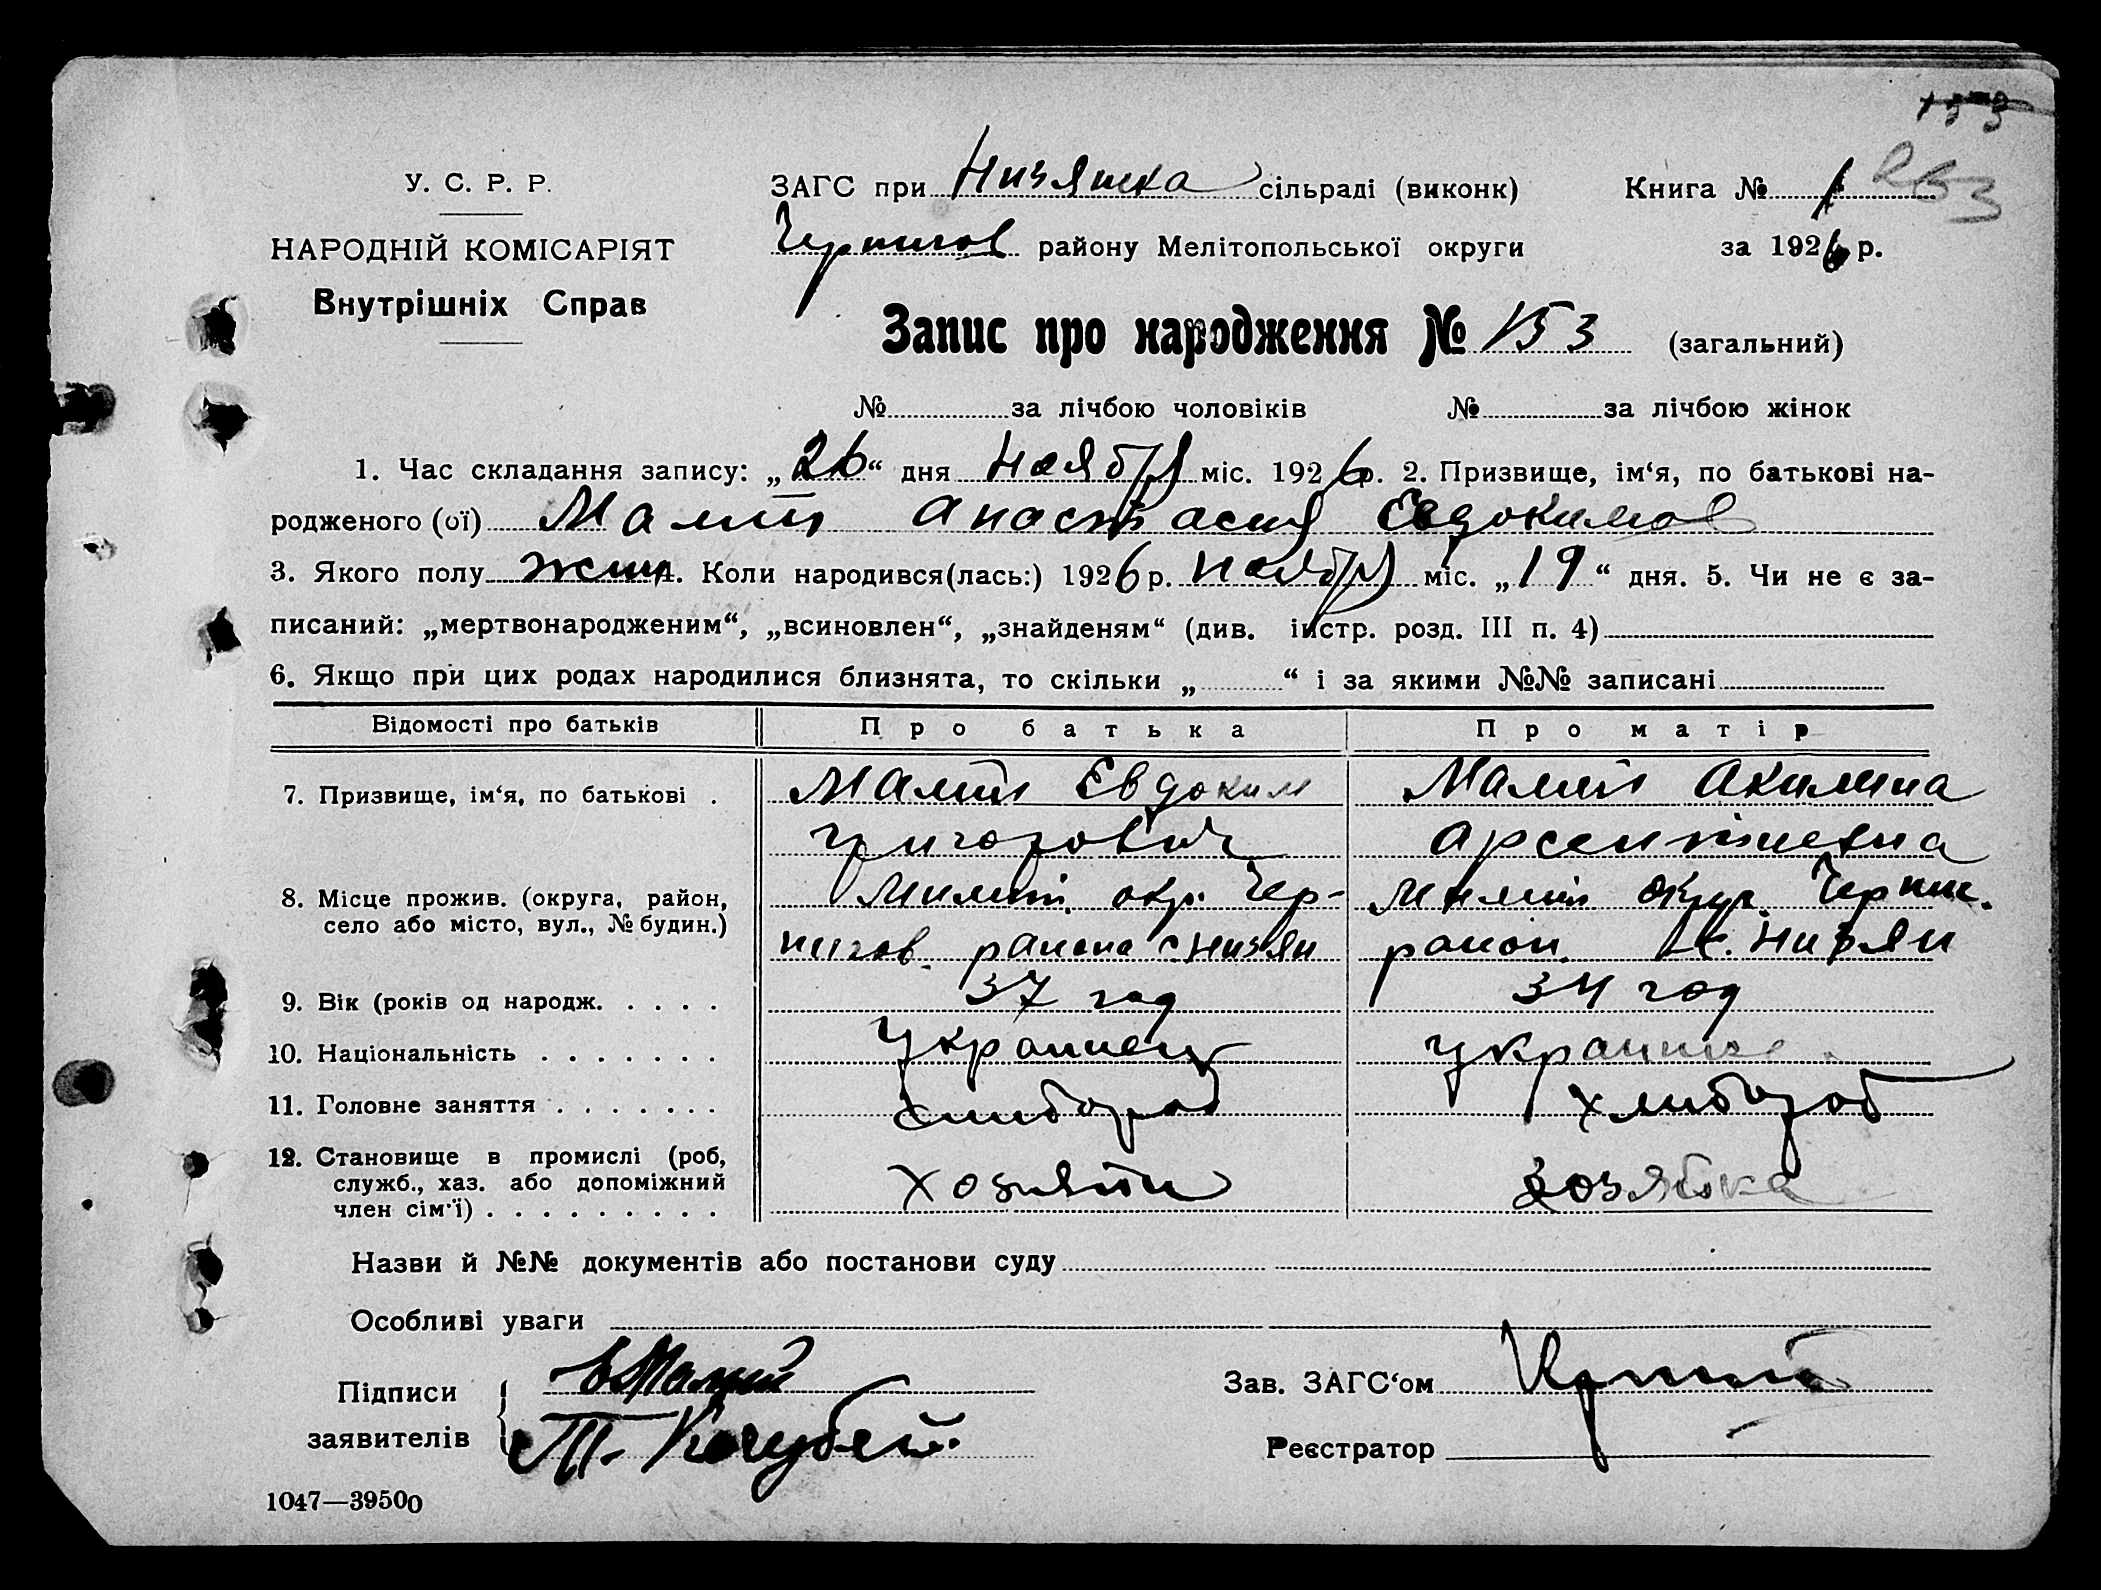 153
У. С. Р. Р.
НАРОДНІЙ КОМІСАРІЯТ
Внутрішніх Справ
ЗАГС при Низянска сільраді (виконк)
Книга № 1
Чернигов району Мелітопольської округи
за 1926 р.
Запис про народження № 153 (загальний)
№ за лічбою чоловіків № за лічбою жінок
1. Час складання запису: „26“ дня ноября міс. 1926 р. 2. Призвище, ім‘я, по батькові на-
родженого (ої) Малий Анастасия Евдокимов
3. Якого полу жен 4. Коли народився(лась:) 1926 р. ноября міс. „19“ дня. 5. Чи не є за-
писаний: „мертвонародженим“, „всиновлен“, „знайденям“ (див. інстр. розд. III п. 4)
6. Якщо при цих родах народилися близнята, то скільки „ “ і за якими №№ записані
Відомості про батьків Про батька Про матір
7. Призвище, ім‘я, по батькові . Малий Евдоким Малий Акилина
Григорович Арсентиевна
8. Місце прожив. (округа, район, Милит. окр. Чер- Милит округ. Черниг.
село або місто, вул., № будин.) нигов. район с Низян район. с. Низян
9. Вік (років од народж. . . . . 37 год 34 год
10. Національність . . . . . . . Украинец Украинка
11. Головне заняття . . . . . . . хлибороб хлибороб
12. Становище в промислі (роб, хозяин хозяйка
служб., хаз. або допоміжний
член сім'ї) . . . . . . . . .
Назви й №№ документів або постанови суду
Особливі уваги
Підписи Е Малий Зав. ЗАГС‘ом
заявителів Т. Кочубей. Реєстратор
1047—39500